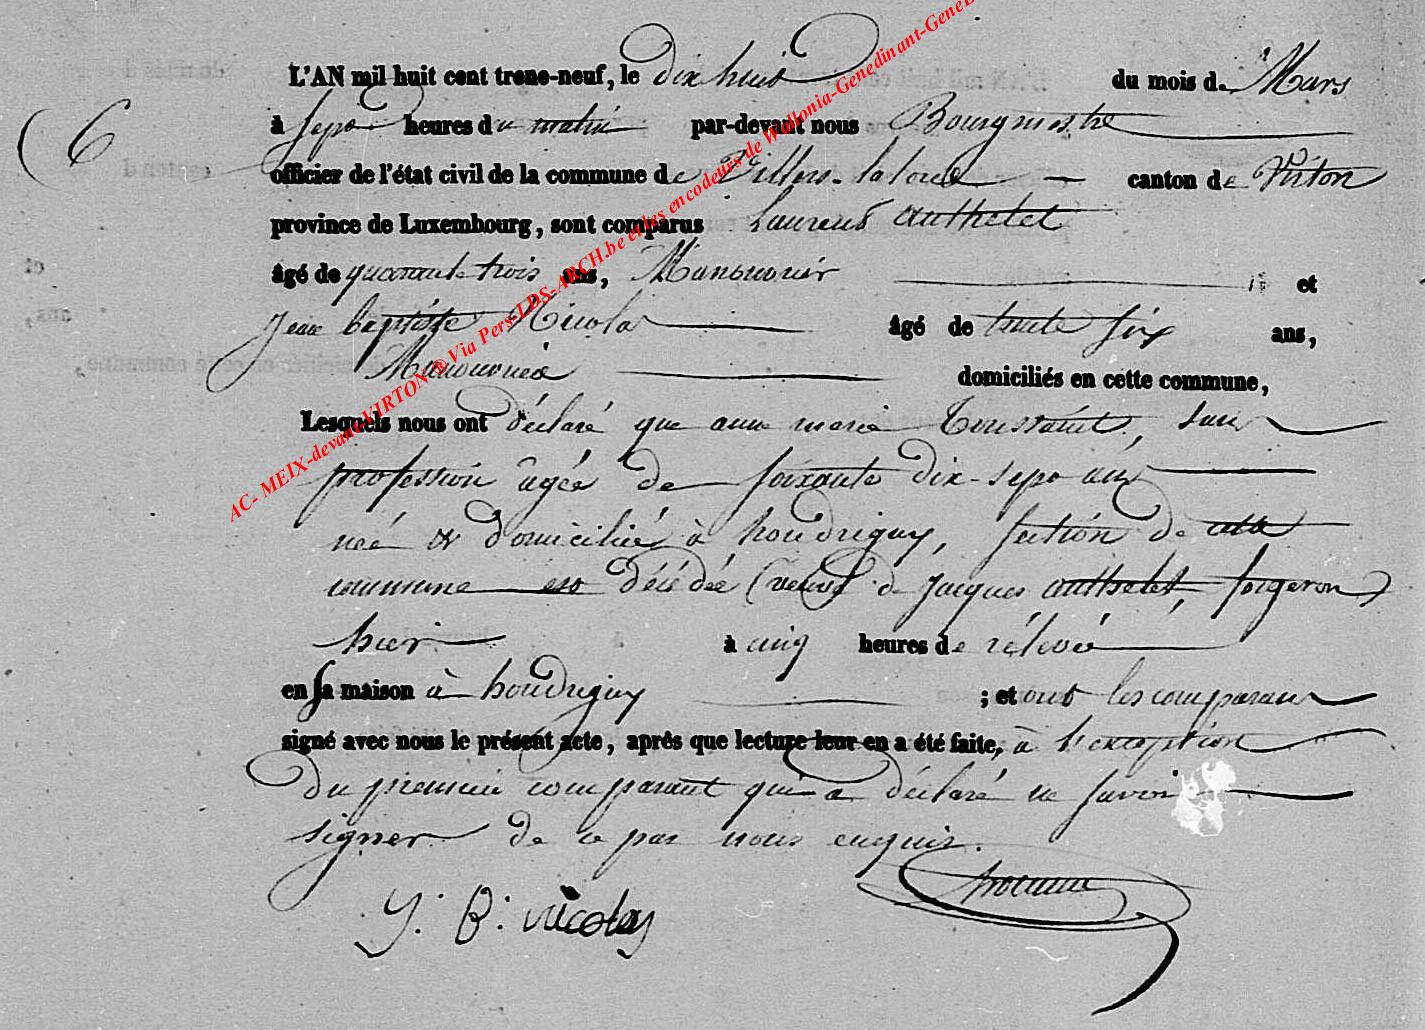 L'AN mil huit cent trene-neuf, le dix huit du mois de Mars
6 à sept heures du matin par-devant nous Bourgmestre
officier de l'état civil de la commune de Villers-laloue canton de Virton
province de Luxembourg, sont comparus Laurent authelet
âgé de quarante trois ans, Manouvrier et
Jean baptiste Nicolas âgé de trente six ans,
Manouvrier domiciliés en cette commune,
Lesquels nous ont déclaré que anne marie Toussaint, sans
profession âgée de soixante dix-sept ans
née & domiciliée à houdrigny, section de cette
commune est décédée (veuve de Jacques authelet, forgeron)
hier à cinq heures de rélevée
en sa maison à houdrigny ; et ont les comparans
signé avec nous le présent acte, aprés que lecture leur en a été faite, à l'exception
du premier comparant qui a déclaré ne savoir
signer de ce par nous enquis.
J. B. nicolas
AC- MEIX-devant-VIRTON ® Via Pers-LDS-ARCH.be et les encodeurs de Wallonia-Genedinant-GeneL